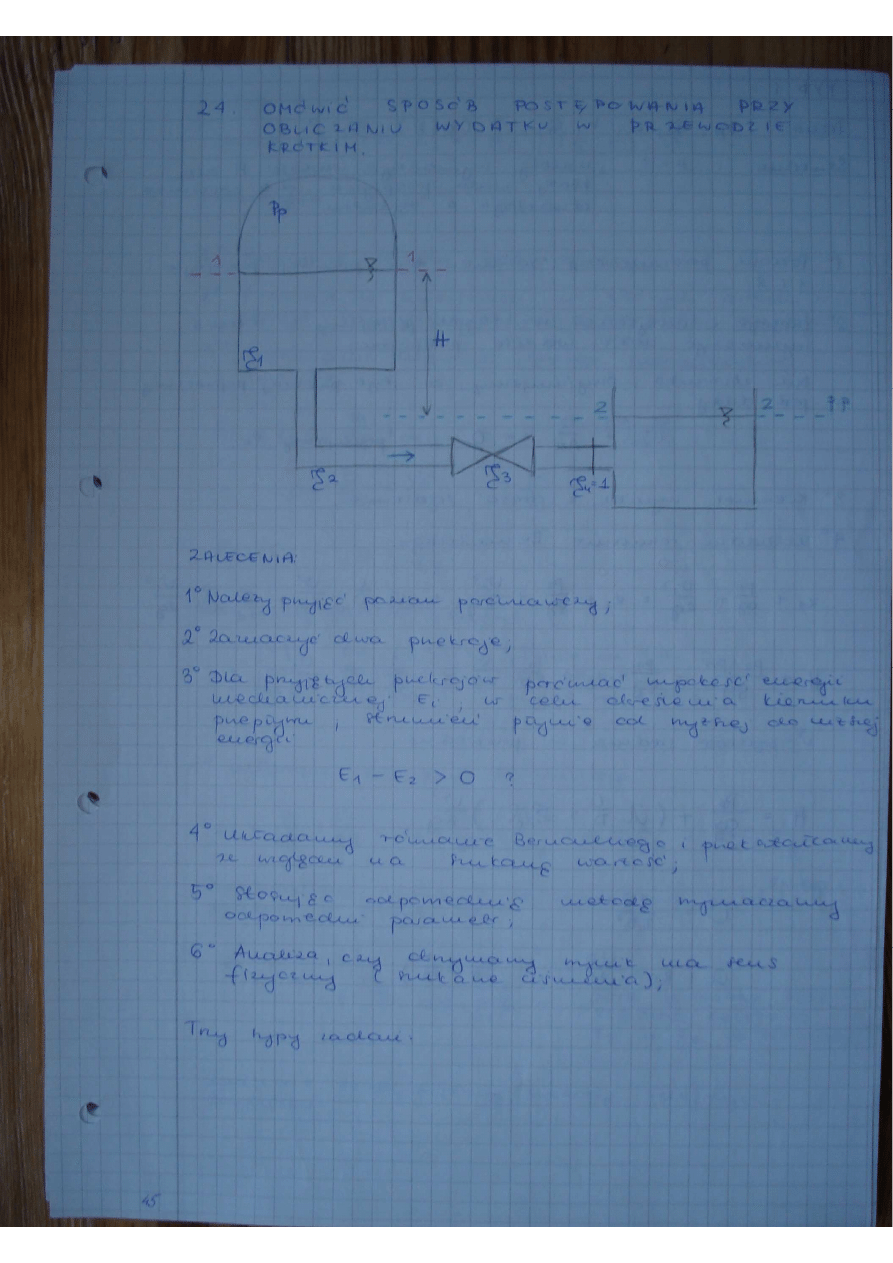 24. OMÓWIĆ SPOSÓB POSTĘPOWANIA PRZY
OBLICZANIU WYDATKU W PRZEWODZIE
KRÓTKIM.
Pp
1 1
H
ξ1
2 2 PP
ξ2 ξ3 ξ4=1
ZALECENIA:
1° Należy przyjąć poziom porównawczy;
2° Zaznaczyć dwa przekroje;
3° Dla przyjętych przekrojów porównać wysokość energii
mechanicznej Ei, w celu określenia kierunku
przepływu, strumień płynie od wyższej do niższej
energii
E1 - E2 > 0 ?
4° Układamy równanie Bernoulliego i przekształcamy
ze względu na szukaną wartość;
5° Stosując odpowiednią metodę wyznaczamy
odpowiedni parametr;
6° Analiza, czy otrzymany wynik ma sens
fizyczny (szukane ciśnienia);
Trzy typy zadań.
15